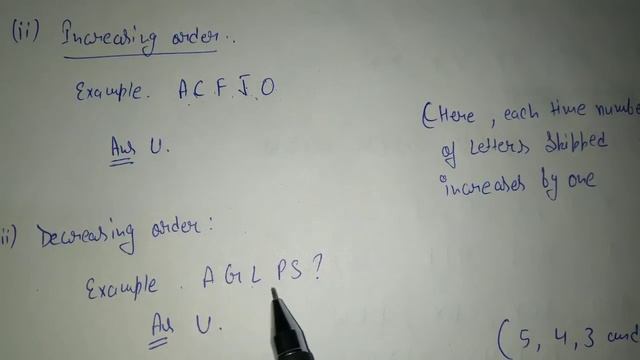 (ii) Increasing order..
Example. A C F J O
Ans U.
(Here, each time numbe
of letters skipped
increases by one
ii) Decreasing order:
Example. A G L P S ?
Ans U.
(5, 4, 3 and